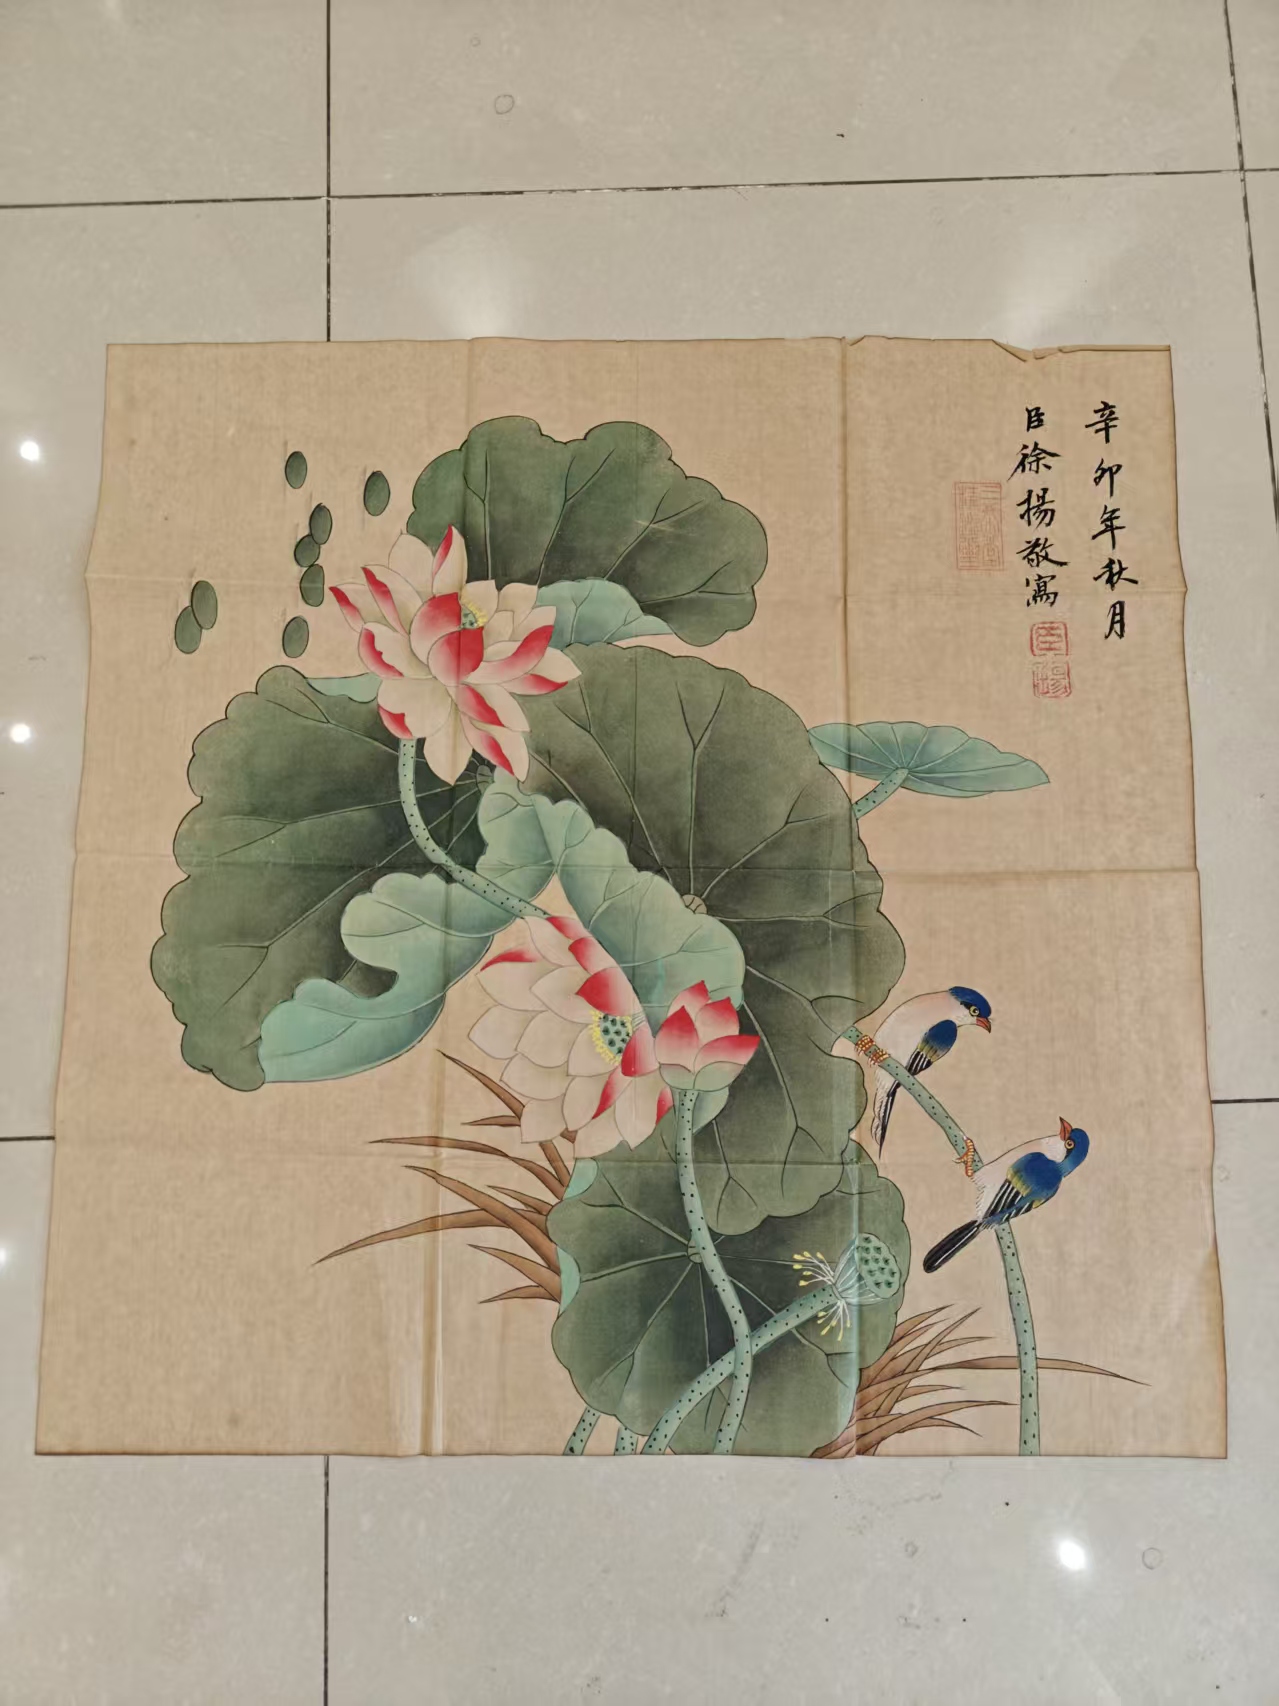 辛卯年秋月
臣徐揚敬寫
臣
揚